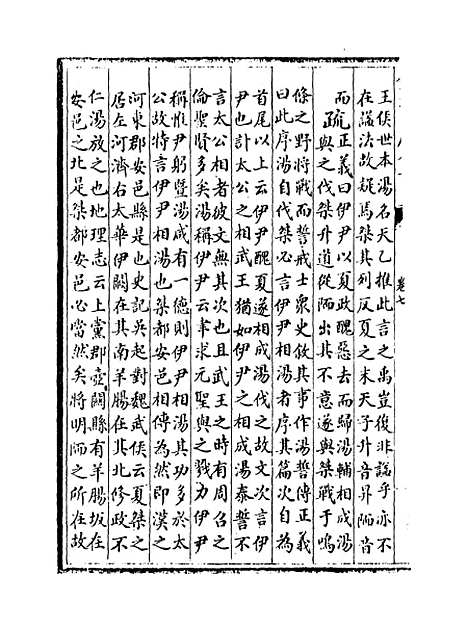 王侯世本湯名天乙推此言之禹豈復非謚乎亦不
在謚法故疑焉桀其列反夏之末天子升音昇陑音
而疏正義曰伊尹以夏政醜惡去而歸湯輔相成湯
與之伐桀升道從陑出其不意遂與桀戰于鳴
條之野將戰而誓戒士衆史敘其事作湯誓傳正義
曰此序湯自伐桀必言伊尹相湯者序其篇次自為
首尾以上云伊尹醜夏遂相成湯伐之故文次言伊
尹也計太公之相武王猶如伊尹之相成湯泰誓不
言太公相者彼文無其次也且武王之時有周召之
倫聖賢多矣湯稱伊尹云聿求元聖與之戮力伊尹
稱惟尹躬暨湯咸有一德則伊尹相湯其功多於太
公故特言伊尹相湯也桀都安邑相傳為然即漢之
河東郡安邑縣是也史記吳起對魏武侯云夏桀之
居左河濟右太華伊闕在其南羊腸在其北修政不
仁湯放之也地理志云上黨郡壺關縣有羊腸坂在
安邑之北是桀都安邑必當然矣將明陑之所在故
卷七